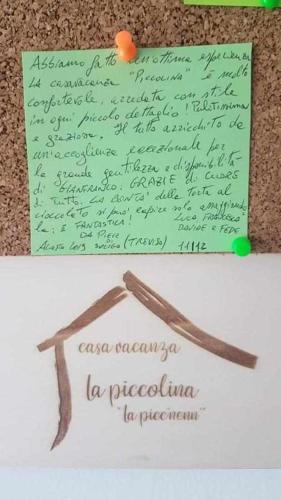 Abbiamo fatto un'ottima esperienza
LA casavacanza "PICCOLINA" è molto
confortevole, arredata con stile
in ogni piccolo dettaglio! Pulitissima
e graziosa. Il tutto arricchito da
un'accoglienza eccezionale per
la grande gentilezza e disponibilità
di GIANFRANCO: GRAZIE di CUORE
di Tutto. LA bontà della torta al
cioccolato si può capire solo assaggiando
la: È FANTASTICA! LUCA, FRANCESCO
DA PIEVE DAVIDE e FEDE
AGOSTO 2019 DI SOLIGO (TREVISO)
casa vacanza
la piccolina
"la picc'nenn"